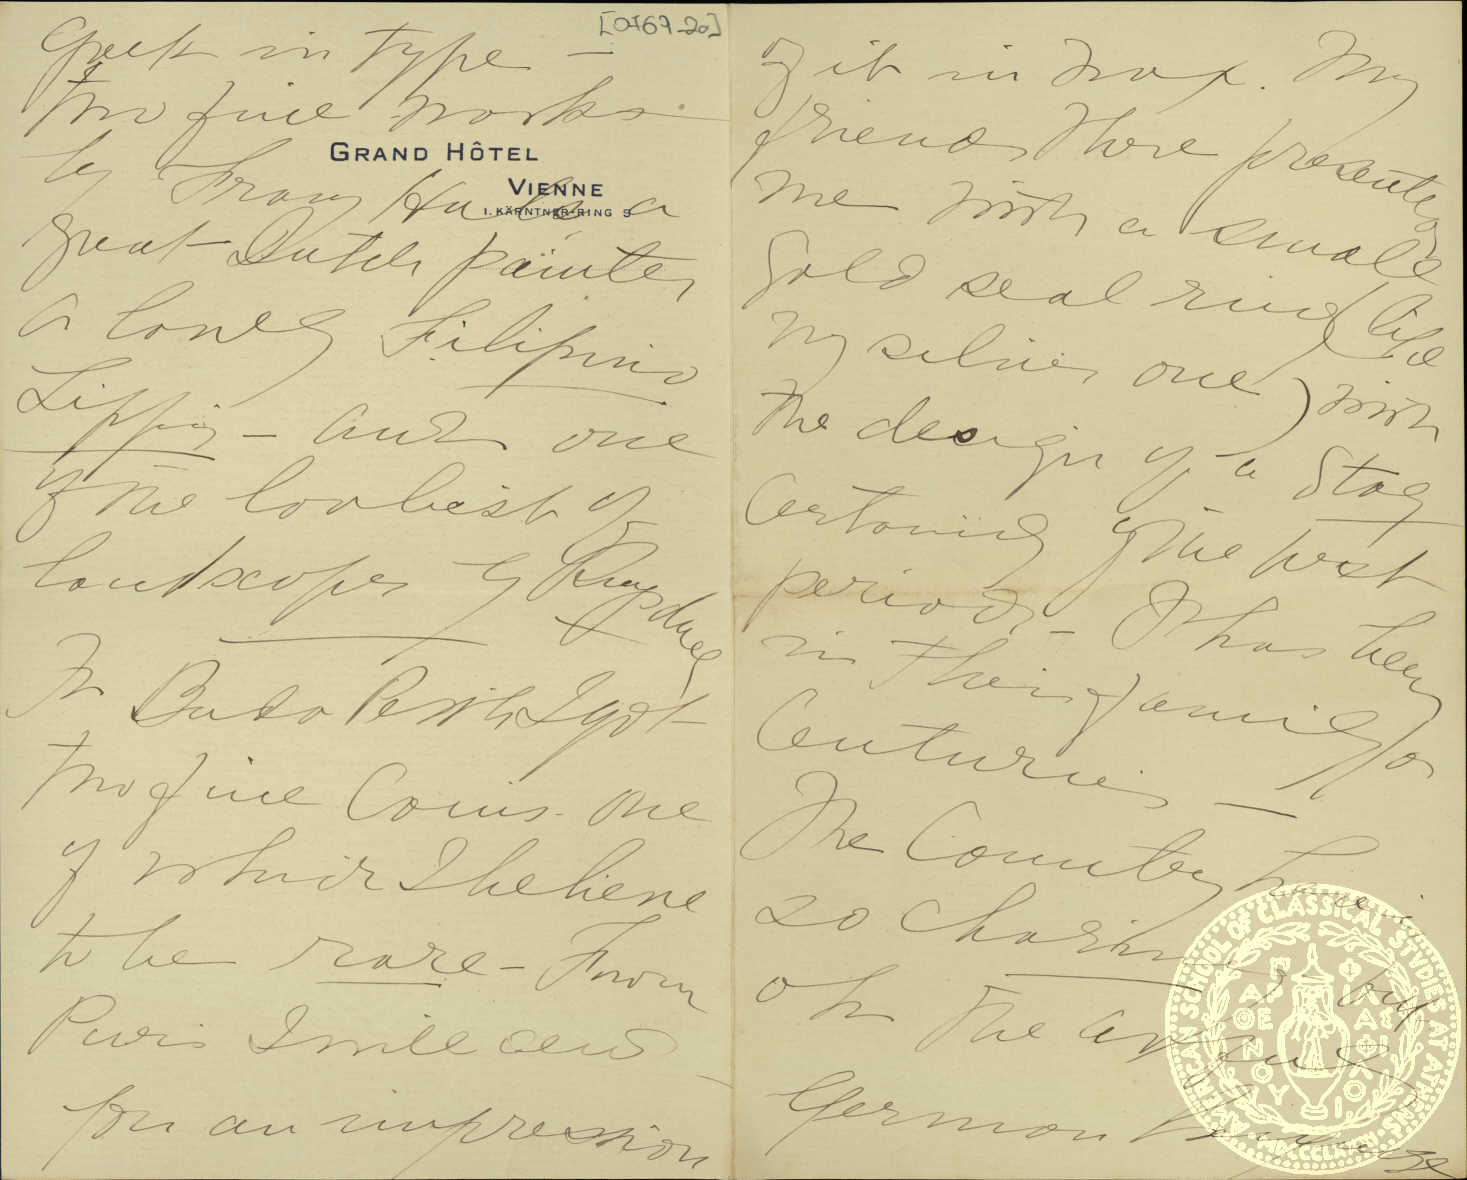 [0767-20]
Greek in type —
two fine works
GRAND HÔTEL
VIENNE
I. KÄRNTNER-RING 9
by Franz Hals a
great Dutch painter
a lovely Filipino
Lippi — and one
of the lovliest of
landscapes by Ruysdael
In Buda Pesth I got
two fine Coins. one
of which I believe
to be rare — From
Paris I will send
you an impression
of it in wax. My
friends there presented
me with a small
Gold seal ring (like
my silver one) with
the design of a Stag
Certainly of the best
period — It has been
in their family for
Centuries —
The Country here is
so charming — but
oh the awful
German language
AMERICAN SCHOOL OF CLASSICAL STVDIES AT ATHENS
MDCCCLXXXI